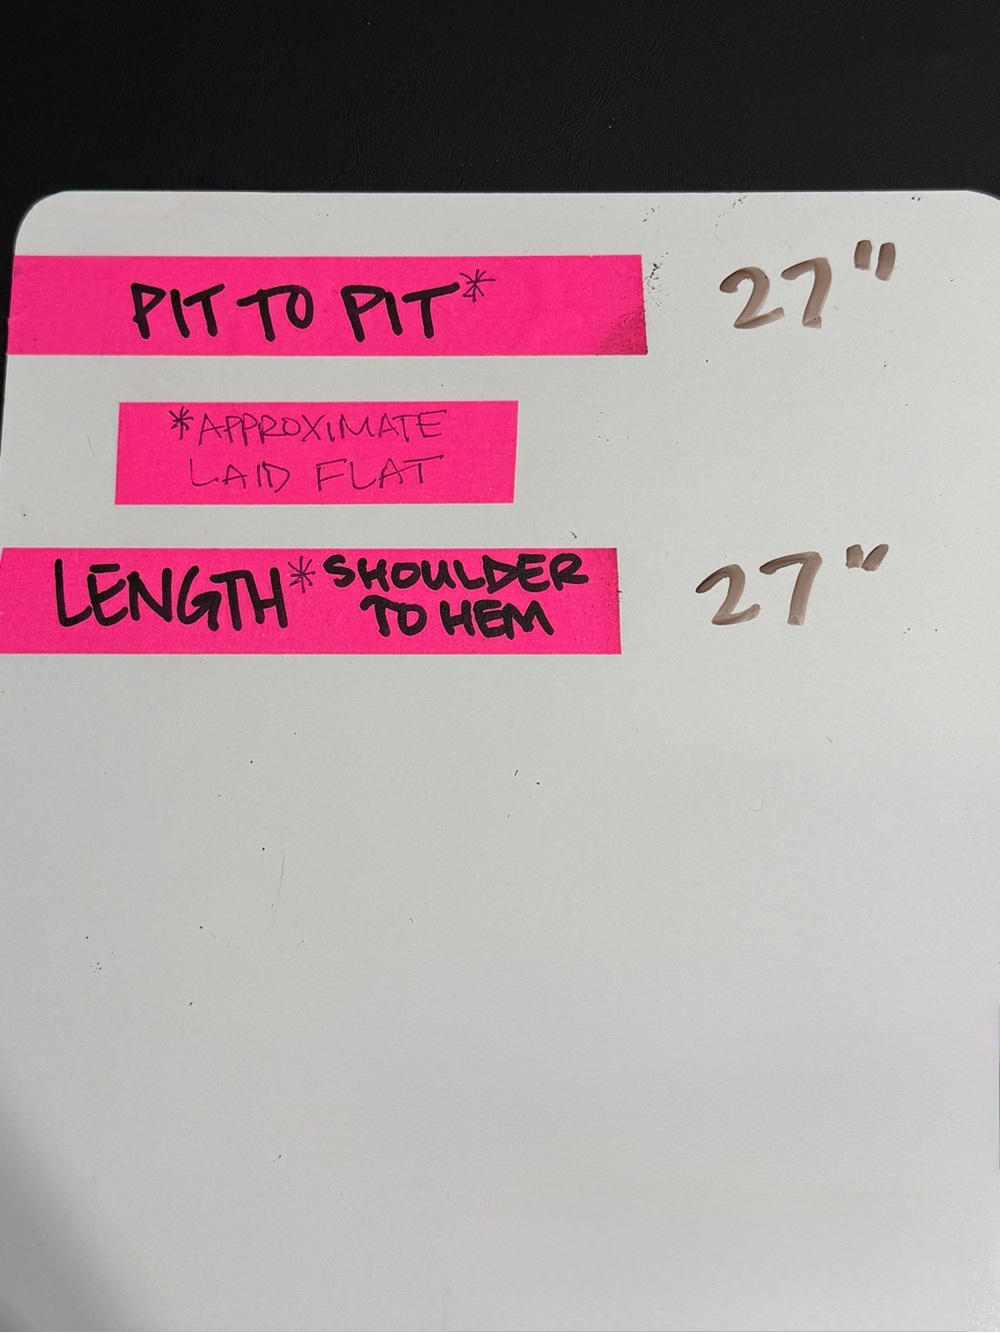 PIT TO PIT* 27"
*APPROXIMATE
LAID FLAT
LENGTH* SHOULDER 27"
TO HEM